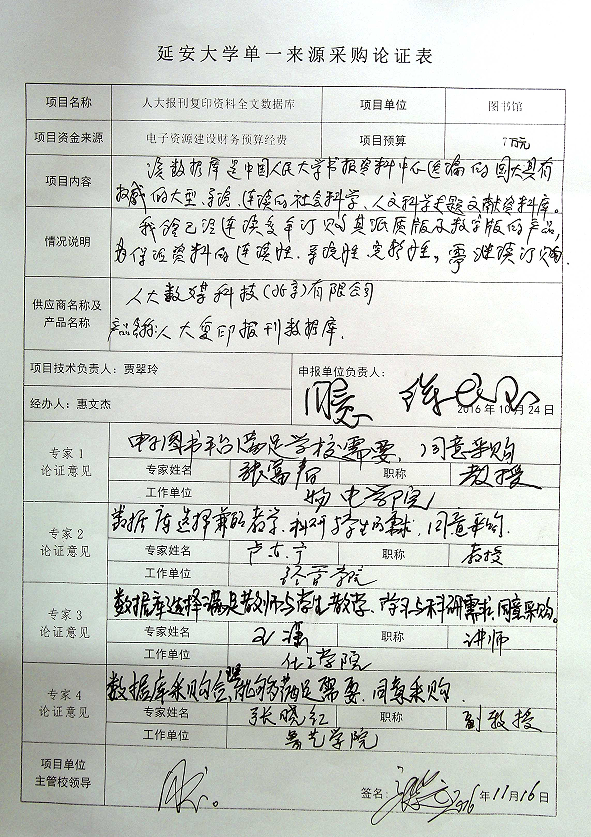 延安大学单一来源采购论证表
项目名称 人大报刊复印资料全文数据库 项目单位 图书馆
项目资金来源 电子资源建设财务预算经费 项目预算 7万元
项目内容 该数据库是中国人民大学书报资料中心选编的国内具有
权威的大型、系统、连续的社会科学、人文科学专题文献资料库。
情况说明 我馆已经连续多年订购其纸质版及数字版的产品,
为保证资料的连续性、系统性、完整性,需继续订购。
供应商名称及产品名称 人大数媒科技(北京)有限公司
产品名称:人大复印报刊数据库.
项目技术负责人:贾翠玲 申报单位负责人:
同意
经办人:惠文杰 2016年10月24日
专家1论证意见 电子图书平台满足学校需要,同意采购
专家姓名 张富春 职称 教授
工作单位 物电学院
专家2论证意见 数据库选择兼顾教学、科研与学生的需求,同意采购.
专家姓名 职称 教授
工作单位 经管学院
专家3论证意见 数据库选择满足教师与学生教学、学习与科研需求,同意采购。
专家姓名 职称 讲师
工作单位 化工学院
专家4论证意见 数据库采购合理,能够满足需要,同意采购.
专家姓名 张晓红 职称 副教授
工作单位 鲁艺学院
项目单位主管校领导 同意。 签名: 2016年11月16日